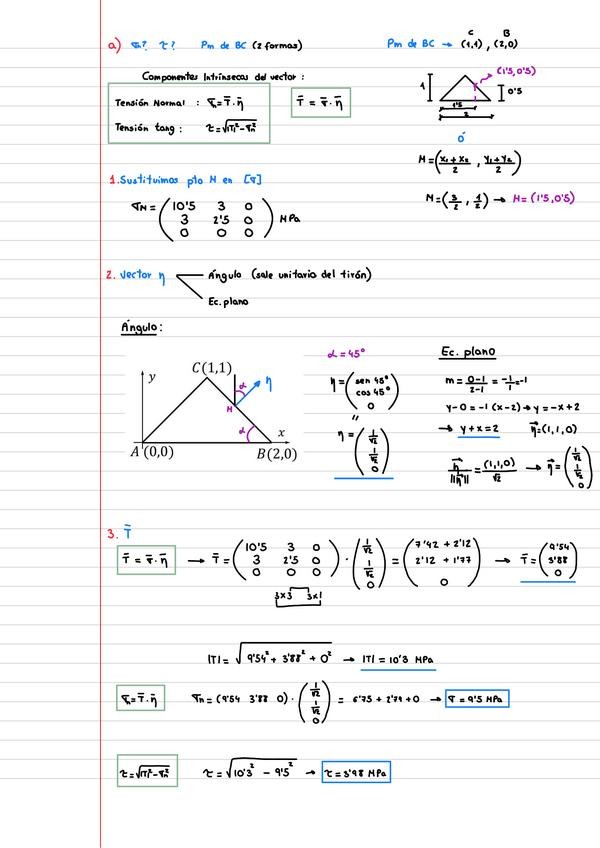 a) σn? τ? Pm de BC (2 formas)
Pm de BC → (1,1), (2,0)
C B
Componentes Intrínsecas del vector:
Tensión Normal : σn = T̄ · η̄
Tensión tang : τ = √|T|² - σn²
T̄ = σ̄ · η̄
(1'5, 0'5)
1
0'5
1'5
2
ó
M = (x₁ + x₂ / 2 , y₁ + y₂ / 2)
M = (3/2 , 1/2) → M = (1'5, 0'5)
1. Sustituimos pto M en [σ]
σM = (10'5 3 0
3 2'5 0
0 0 0) MPa
2. Vector η
Ángulo (sale unitario del tirón)
Ec. plano
Ángulo:
y
C(1,1)
α
η
M
α
x
A (0,0)
B(2,0)
α = 45°
η = (sen 45°
cos 45°
0)
"
η = (1/√2
1/√2
0)
Ec. plano
m = 0-1 / 2-1 = -1/1 = -1
y-0 = -1 (x-2) → y = -x+2
→ y + x = 2 η̄ = (1,1,0)
η̄ / ||η̄|| = (1,1,0) / √2 → η̄ = (1/√2
1/√2
0)
3. T̄
T̄ = σ̄ · η̄ → T̄ = (10'5 3 0
3 2'5 0
0 0 0) · (1/√2
1/√2
0) = (7'42 + 2'12
2'12 + 1'77
0) → T̄ = (9'54
3'88
0)
3x3 3x1
|T| = √9'54² + 3'88² + 0² → |T| = 10'3 MPa
σn = T̄ · η̄ σn = (9'54 3'88 0) · (1/√2
1/√2
0) = 6'75 + 2'74 + 0 → σ = 9'5 MPa
τ = √|T|² - σn² τ = √10'3² - 9'5² → τ = 3'98 MPa